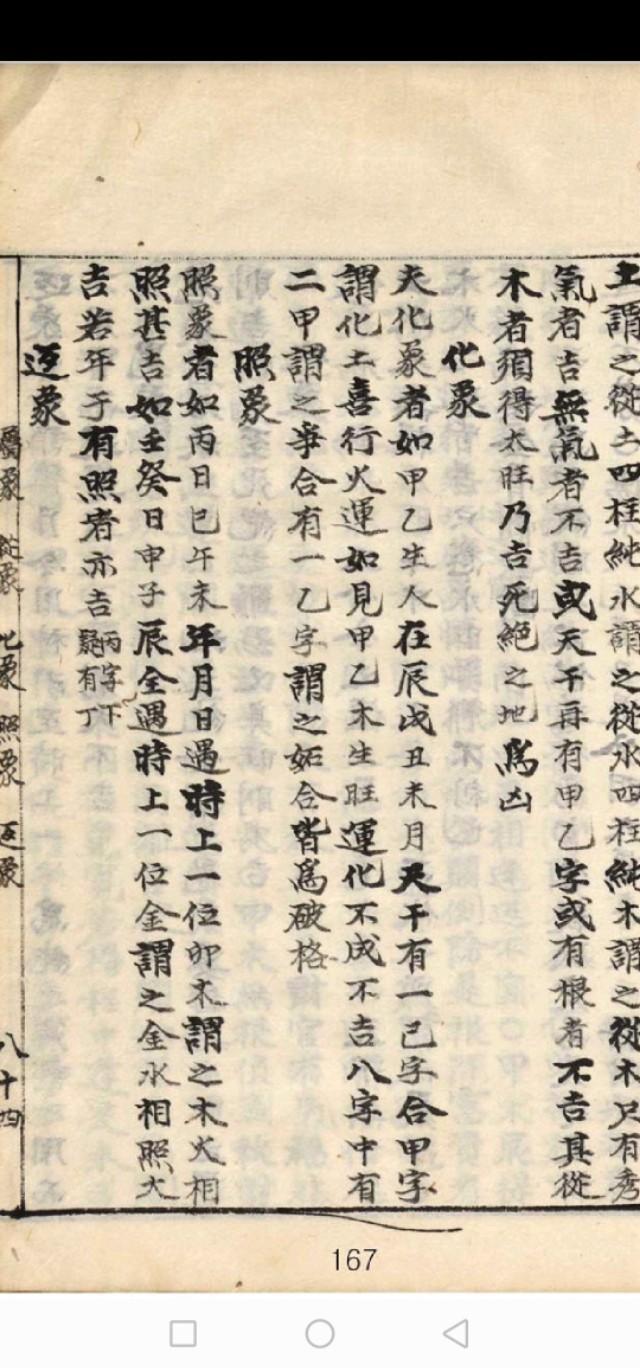 土謂之從土四柱純水謂之從水四柱純木謂之從木只有秀
氣者吉無氣者不吉或天干再有甲乙字或有根者不吉其從
木者須得太旺乃吉死絕之地爲凶
化象
夫化象者如甲乙生人在辰戌丑未月天干有一己字合甲字
謂化土喜行火運如見甲乙木生旺運化不成不吉八字中有
二甲謂之爭合有一乙字謂之妬合皆爲破格
照象
照象者如丙日巳午未年月日遇時上一位卯木謂之木火相
照甚吉如壬癸日申子辰全遇時上一位金謂之金水相照大
吉若年干有照者亦吉丙字下疑有丁
返象
屬象 從象 化象 照象 返象 八十四
167